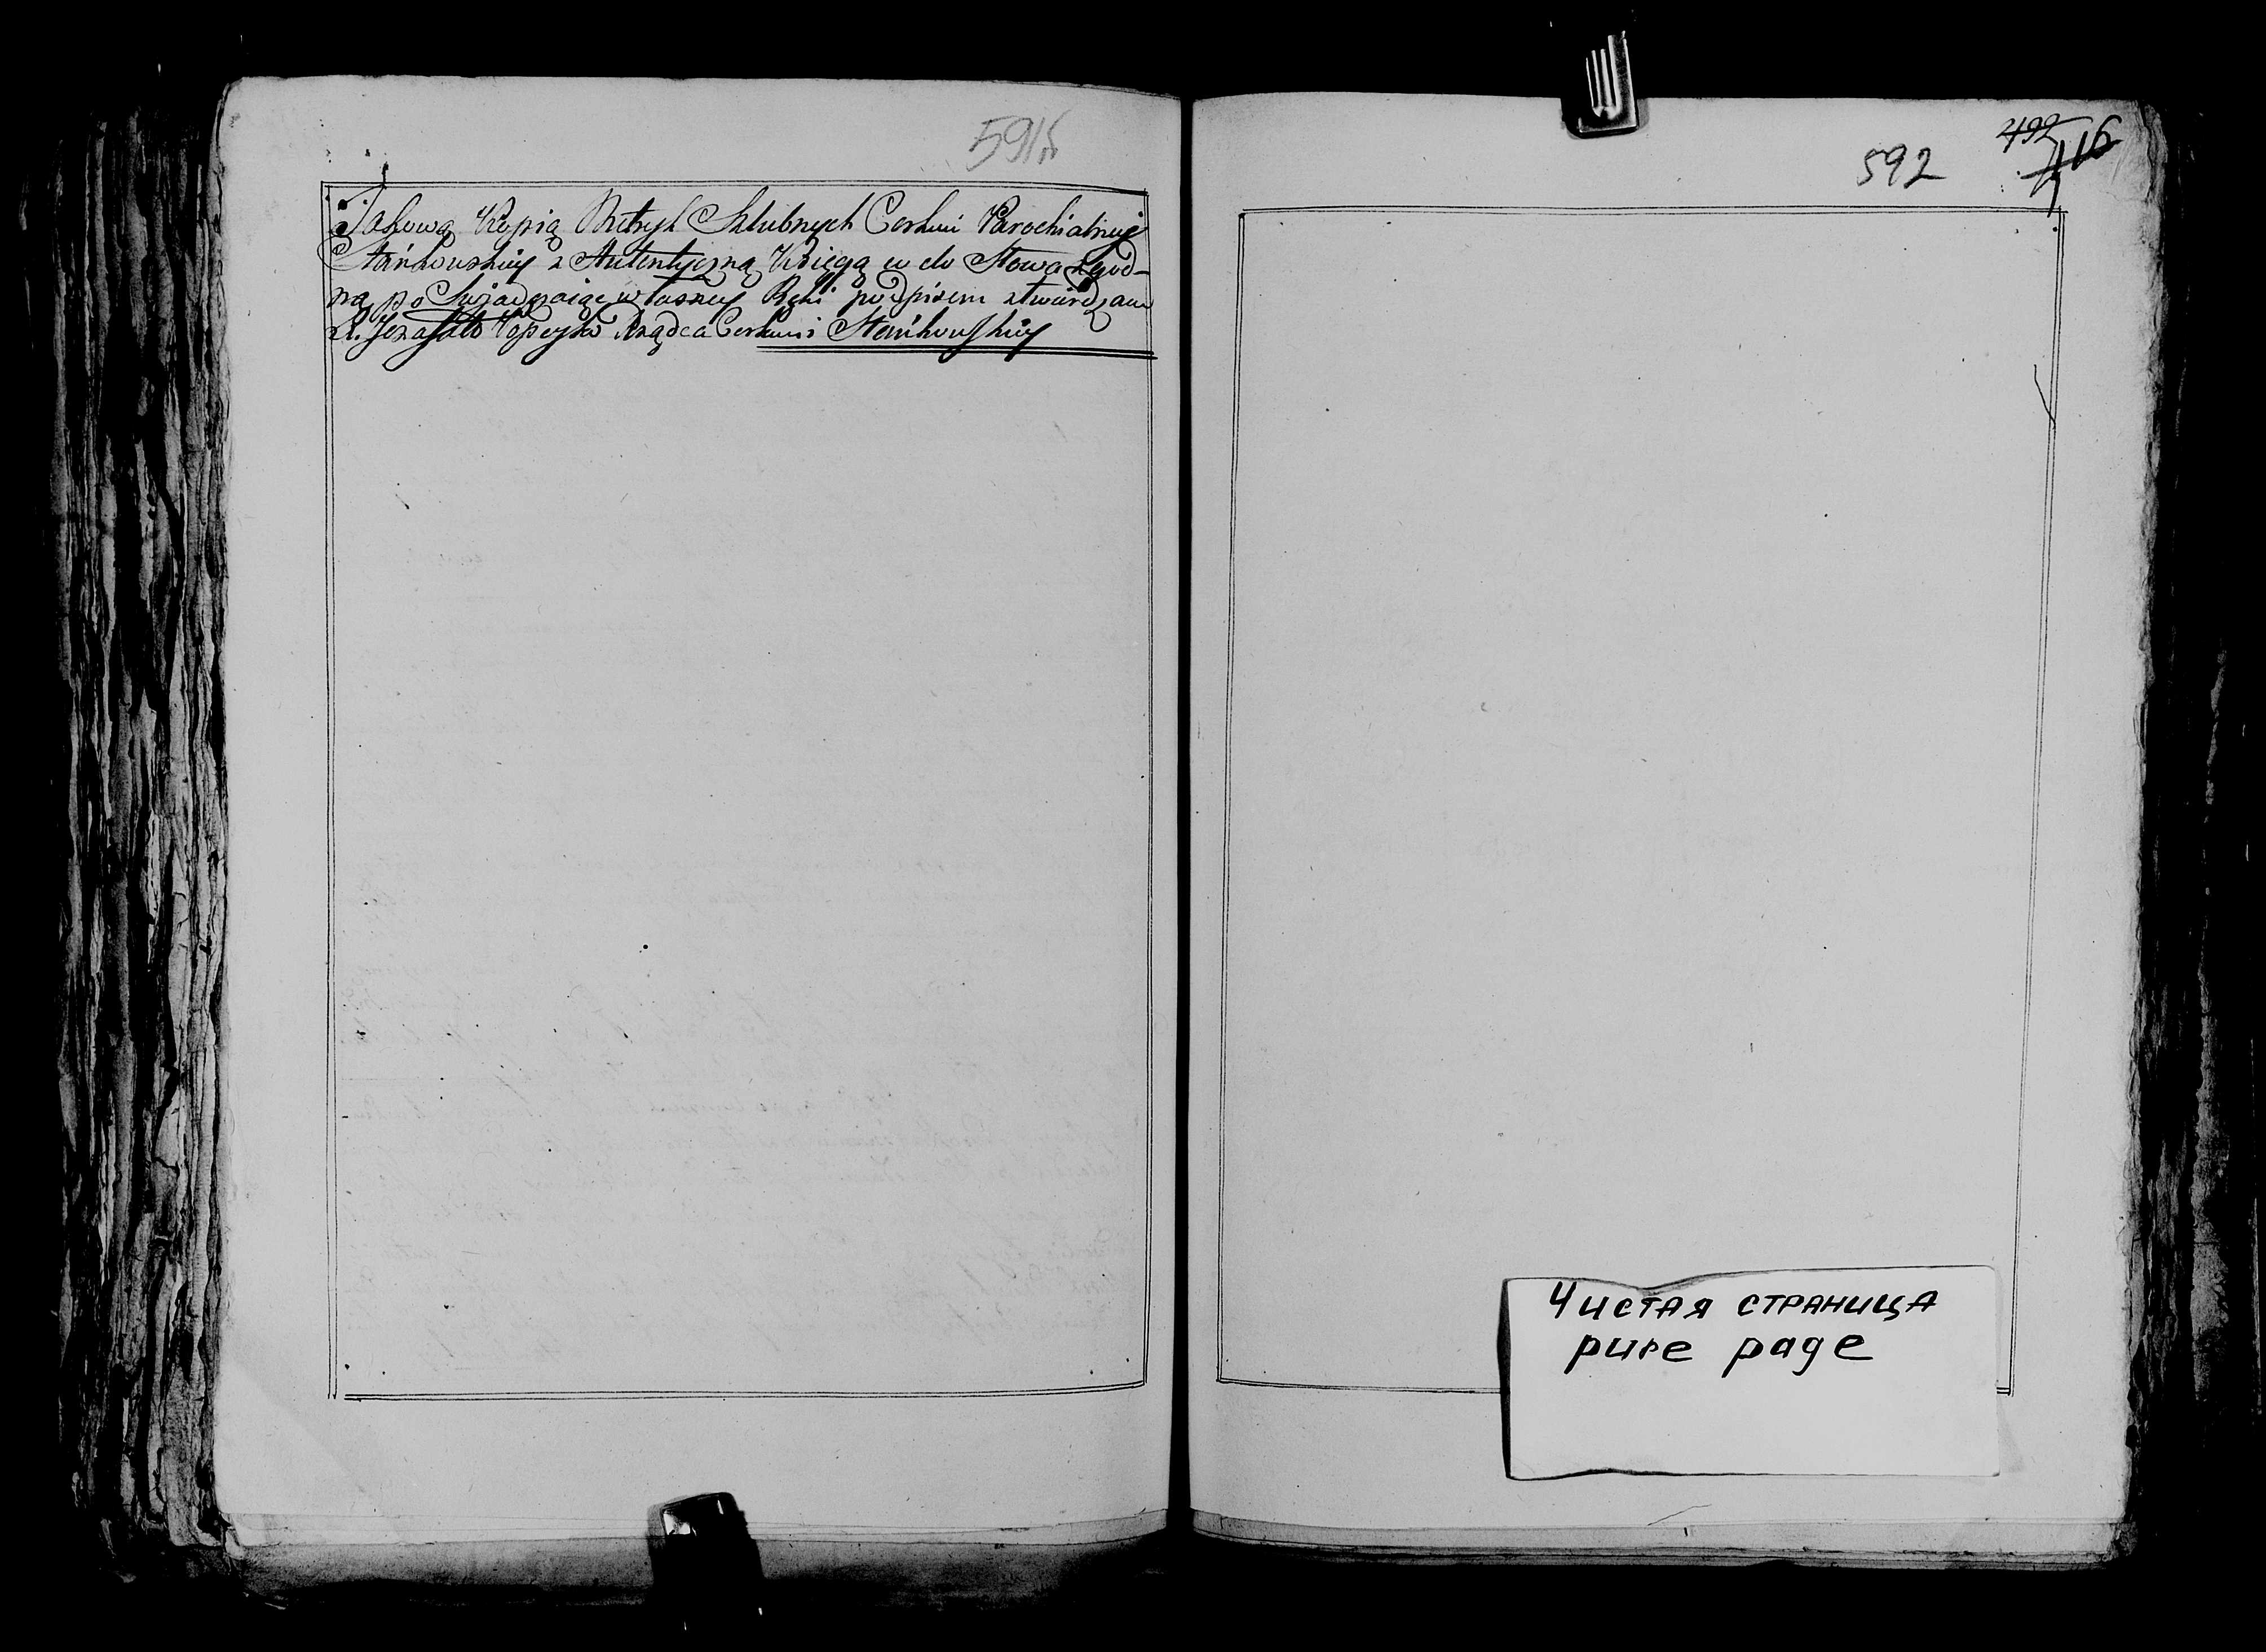 591
Takową Kopią Metryk Szlubnych Cerkwi Parochialney
Stańkowskiey z Autentyczną Xsięgą w do Słowa zgod-
ną poświadczaiąc własney Ręki podpisem ztwierdzam
X. Kopeyko Rządca Cerkwi Stańkowskiey
592
492
116
Чистая страница
pure page